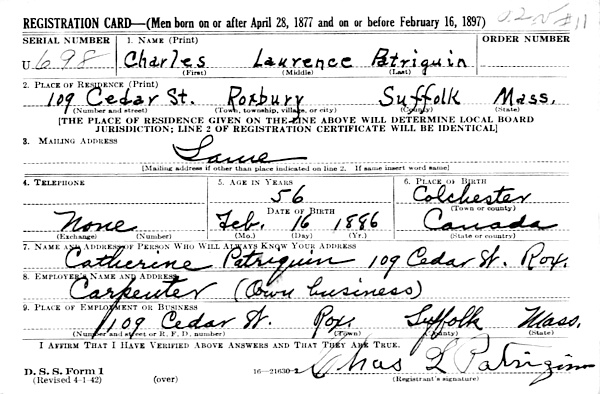 REGISTRATION CARD—(Men born on or after April 28, 1877 and on or before February 16, 1897)
SERIAL NUMBER 1. NAME (Print) ORDER NUMBER
U 698 Charles Laurence Patriquin
(First) (Middle) (Last)
2. PLACE OF RESIDENCE (Print)
109 Cedar St. Roxbury Suffolk Mass.
(Number and street) (Town, township, village, or city) (County) (State)
[THE PLACE OF RESIDENCE GIVEN ON THE LINE ABOVE WILL DETERMINE LOCAL BOARD
JURISDICTION; LINE 2 OF REGISTRATION CERTIFICATE WILL BE IDENTICAL]
3. MAILING ADDRESS
Same
[Mailing address if other than place indicated on line 2. If same insert word same]
4. TELEPHONE 5. AGE IN YEARS 6. PLACE OF BIRTH
56 Colchester
DATE OF BIRTH (Town or county)
None Feb. 16 1886 Canada
(Exchange) (Number) (Mo.) (Day) (Yr.) (State or country)
7. NAME AND ADDRESS OF PERSON WHO WILL ALWAYS KNOW YOUR ADDRESS
Catherine Patriquin 109 Cedar St. Rox.
8. EMPLOYER'S NAME AND ADDRESS
Carpenter (Own business)
9. PLACE OF EMPLOYMENT OR BUSINESS
109 Cedar St. Rox. Suffolk Mass.
(Number and street or R. F. D. number) (Town) (County) (State)
I AFFIRM THAT I HAVE VERIFIED ABOVE ANSWERS AND THAT THEY ARE TRUE.
D. S. S. Form 1
(Revised 4-1-42) (over) 16—21630-2 Chas L Patriquin
(Registrant's signature)